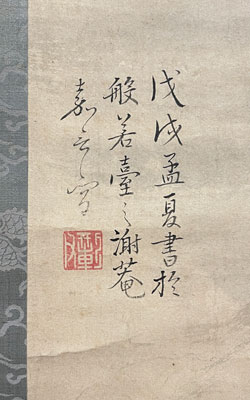 戊戌孟夏書於
般若臺之謝菴
嘉言